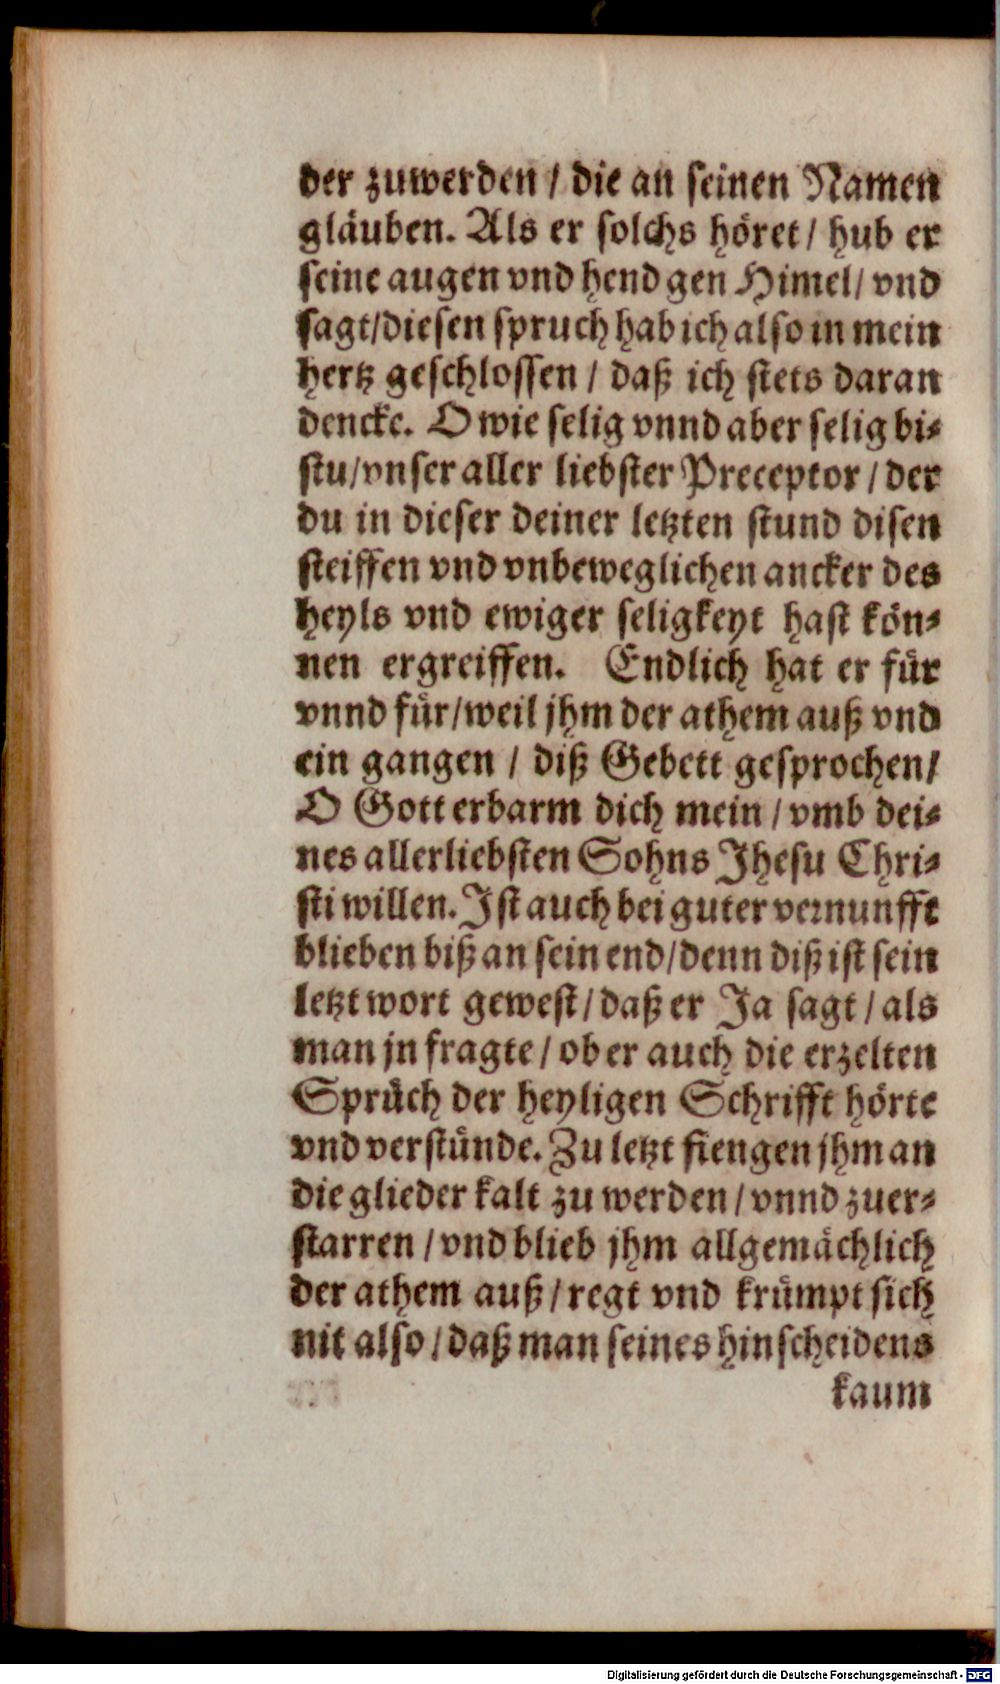 der zuwerden / die an seinen Namen
gläuben. Als er solchs höret / hub er
seine augen vnd hend gen Himel / vnd
sagt / diesen spruch hab ich also in mein
hertz geschlossen / daß ich stets daran
dencke. O wie selig vnnd aber selig bi-
stu / vnser aller liebster Preceptor / der
du in dieser deiner letzten stund disen
steiffen vnd vnbeweglichen ancker des
heyls vnd ewiger seligkeyt hast kön-
nen ergreiffen. Endlich hat er für
vnnd für / weil jhm der athem auß vnd
ein gangen / diß Gebett gesprochen /
O Gott erbarm dich mein / vmb dei-
nes allerliebsten Sohns Jhesu Chri-
sti willen. Ist auch bei guter vernunfft
blieben biß an sein end / denn diß ist sein
letzt wort gewest / daß er Ja sagt / als
man jn fragte / ob er auch die erzelten
Sprüch der heyligen Schrifft hörte
vnd verstünde. Zu letzt fiengen jhm an
die glieder kalt zu werden / vnnd zuer-
starren / vnd blieb jhm allgemächlich
der athem auß / regt vnd krümpt sich
nit also / daß man seines hinscheidens
kaum
Digitalisierung gefördert durch die Deutsche Forschungsgemeinschaft - DFG